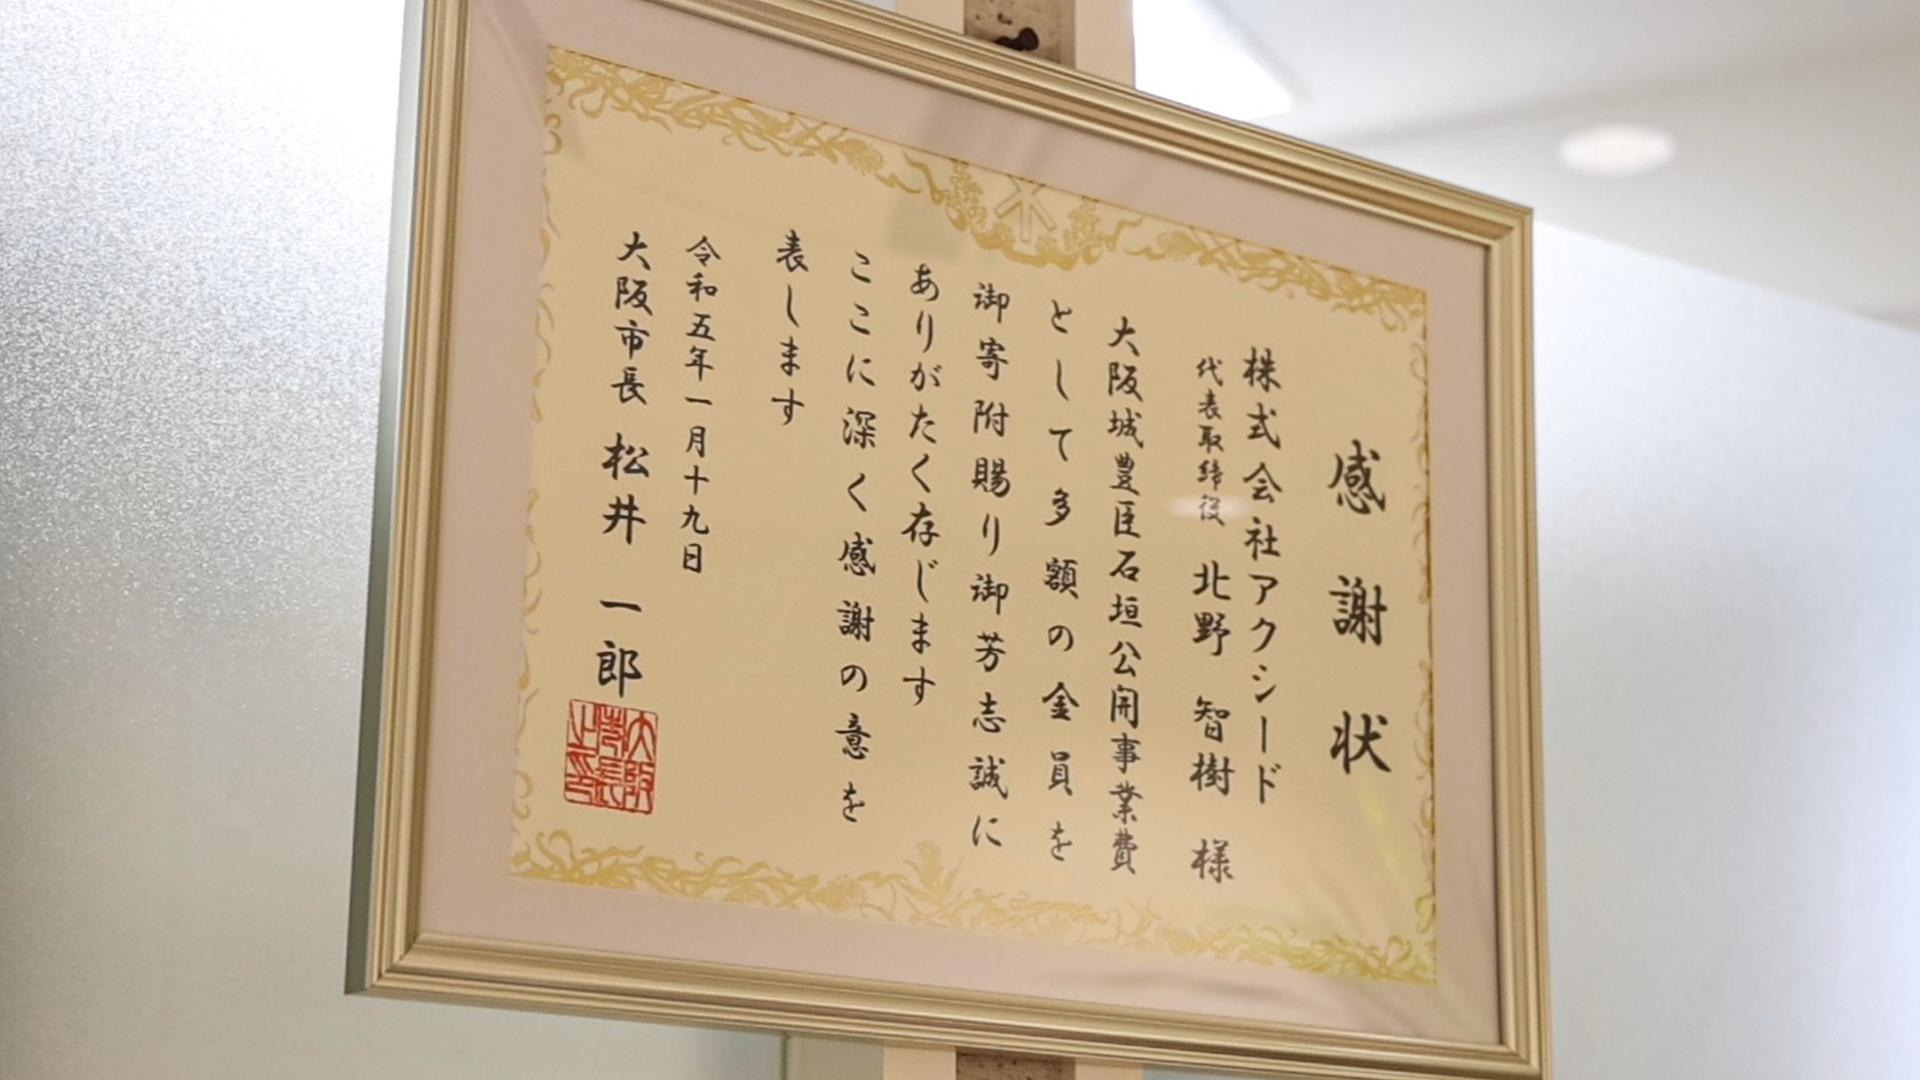 感謝状
株式会社アクシード
代表取締役 北野 智樹 様
大阪城豊臣石垣公開事業費
として多額の金員を
御寄附賜り御芳志誠に
ありがたく存じます
ここに深く感謝の意を
表します
令和五年一月十九日
大阪市長 松井 一郎
大阪市長之印